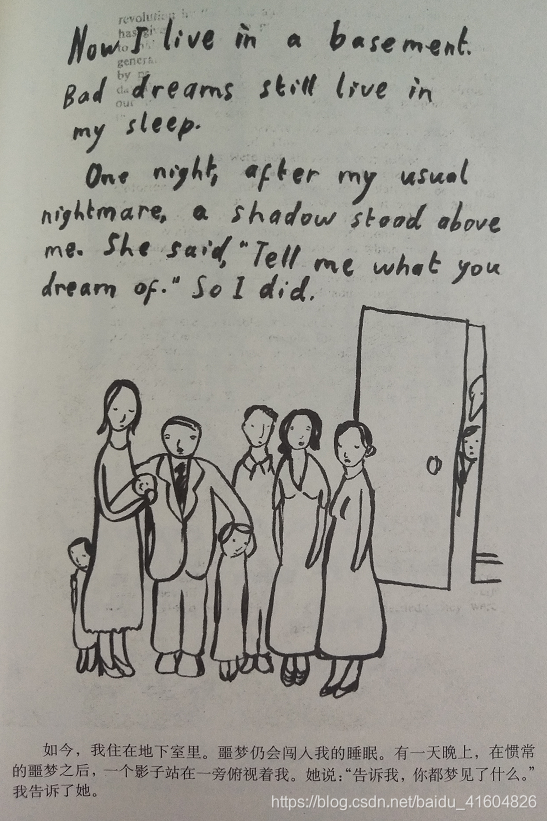 Now I live in a basement.
Bad dreams still live in
my sleep.
One night, after my usual
nightmare, a shadow stood above
me. She said, "Tell me what you
dream of." So I did.
如今，我住在地下室里。噩梦仍会闯入我的睡眠。有一天晚上，在惯常
的噩梦之后，一个影子站在一旁俯视着我。她说：“告诉我，你都梦见了什么。”
我告诉了她。
https://blog.csdn.net/baidu_41604826